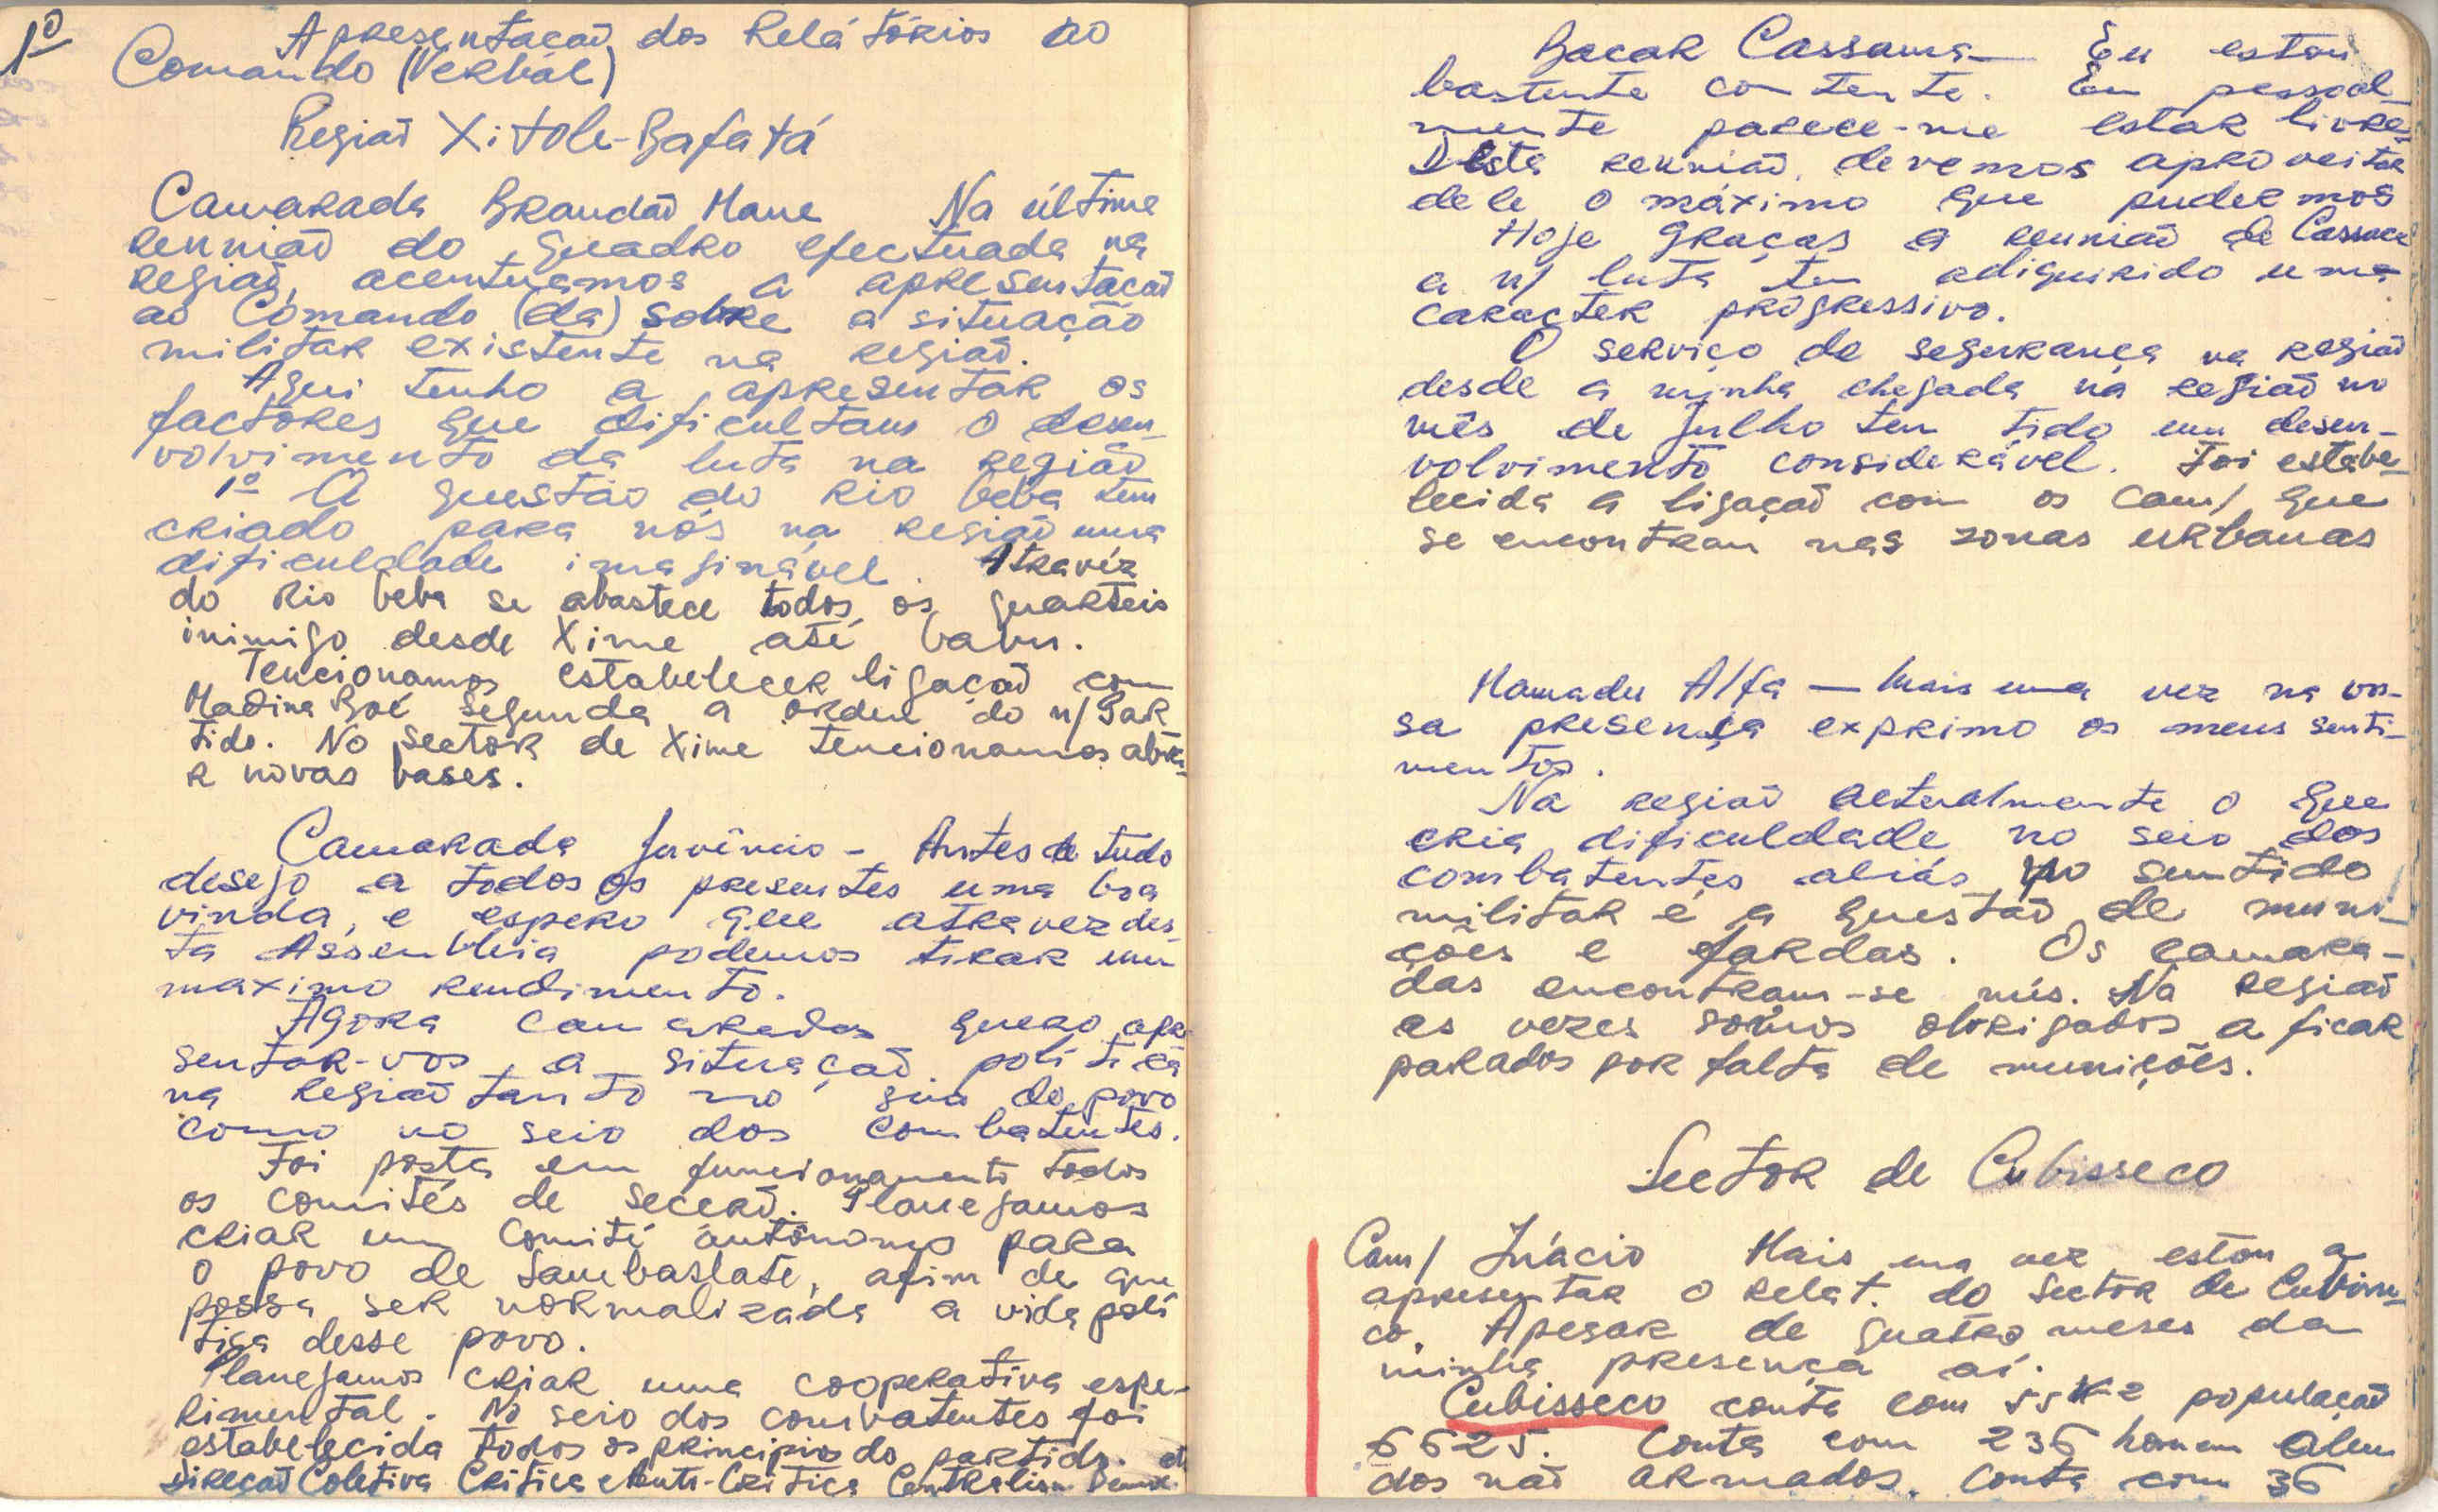 1º
Apresentação dos Relátórios ao
Comando (Verbál)
Região Xitole-Bafatá
Camarada Brandão Mane Na última
reunião do quadro efectuada na
região, acentuamos a apresentação
ao Comando (da) sobre a situação
militar existente na região.
Aqui tenho a apresentar os
factores que dificultam o desen-
volvimento da luta na região
1º A questão do Rio Geba tem
criado para nós na região uma
dificuldade imaginável. Atravéz
do Rio Geba se abastece todos os quarteis
inimigo desde Xime até Gabu.
Tencionamos estabelecer ligação com
Madina Boé segunda a ordem do n/ Par
tido. No sector de Xime tencionamos abri-
r novas bases.
Camarada Juvêncio - Antes de tudo
desejo a todos os presentes uma boa
vinda, e espero que atravez des-
ta Assembleia podemos tirar um
maximo rendimento.
Agora camaradas quero apre
sentar-vos a situação politica
na Região tanto no seio do povo
como no seio dos combatentes.
Foi posta em funcionamento todos
os comités de secção. Planejamos
criar um Comité autónomo para
o povo de afim de que
possa ser normalizada a vida polí
tica desse povo.
Planejamos criar uma cooperativa espe-
rimental. No seio dos combatentes foi
estabelecida todos os principios do partido.
Direção Coletiva Critica e Auto-Critica Centralism Demo.
Bacar Cassama — Eu estou
bastante contente. Eu pessoal-
mente parece-me estar livre.
Desta reunião, devemos aproveitar
dele o máximo que pudermos
Hoje graças a reunião de Cassaca
a n/ luta tem adiquirido uma
caracter progressivo.
O serviço de segurança na região
desde a minha chegada na região no
mês de Julho tem tido um desen-
volvimento considerável. Foi estabe-
lecida a ligação com os Cam/ que
se encontram nas zonas urbanas
Mamadu Alfa — Mais uma vez na vos-
sa presença exprimo os meus senti-
mentos.
Na região actualmente o que
cria dificuldade no seio dos
combatentes aliás no sentido
militar é a questão de muni-
ções e fardas. Os camara-
das encontram-se nús. Na região
as vezes somos obrigados a ficar
parados por falta de munições.
Sector de Cubisseco
Cam/ Inácio Mais uma vez estou a
apresentar o relat. do Sector de Cubisse-
co. Apesar de quatro meses da
minha presença aí.
Cubisseco conta com 55 população
6625. Conta com 236 homem alem
dos não armados. Conta com 36